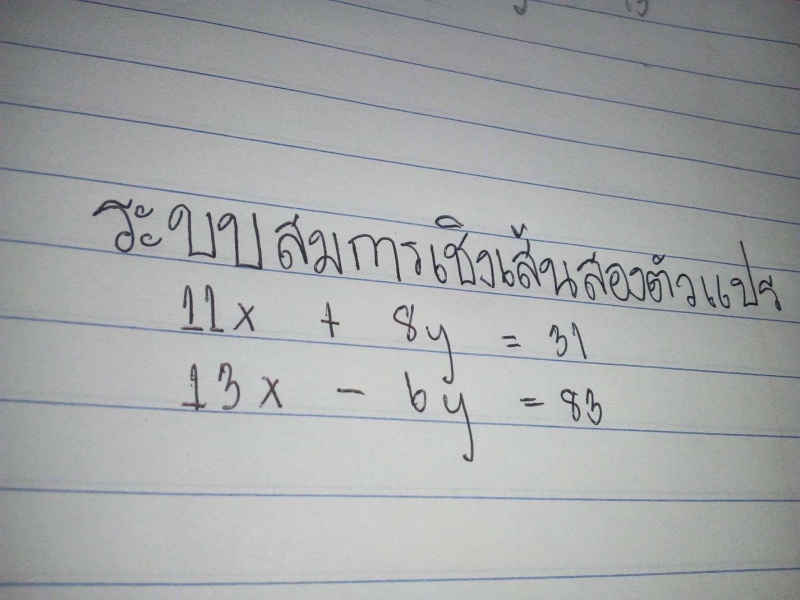 ระบบสมการเชิงเส้นสองตัวแปร
11x + 8y = 31
13x - 6y = 83